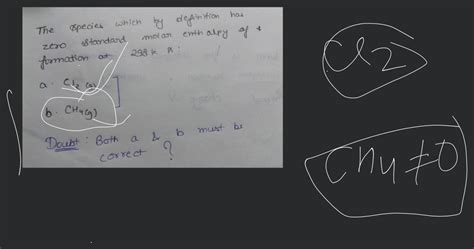 The species which by definition has
zero standard molar enthalpy of
formation at 298 K is:
a. Cl2 (g)
b. CH4(g)
Doubt: Both a & b must be
correct ?
Cl2
CH4≠0